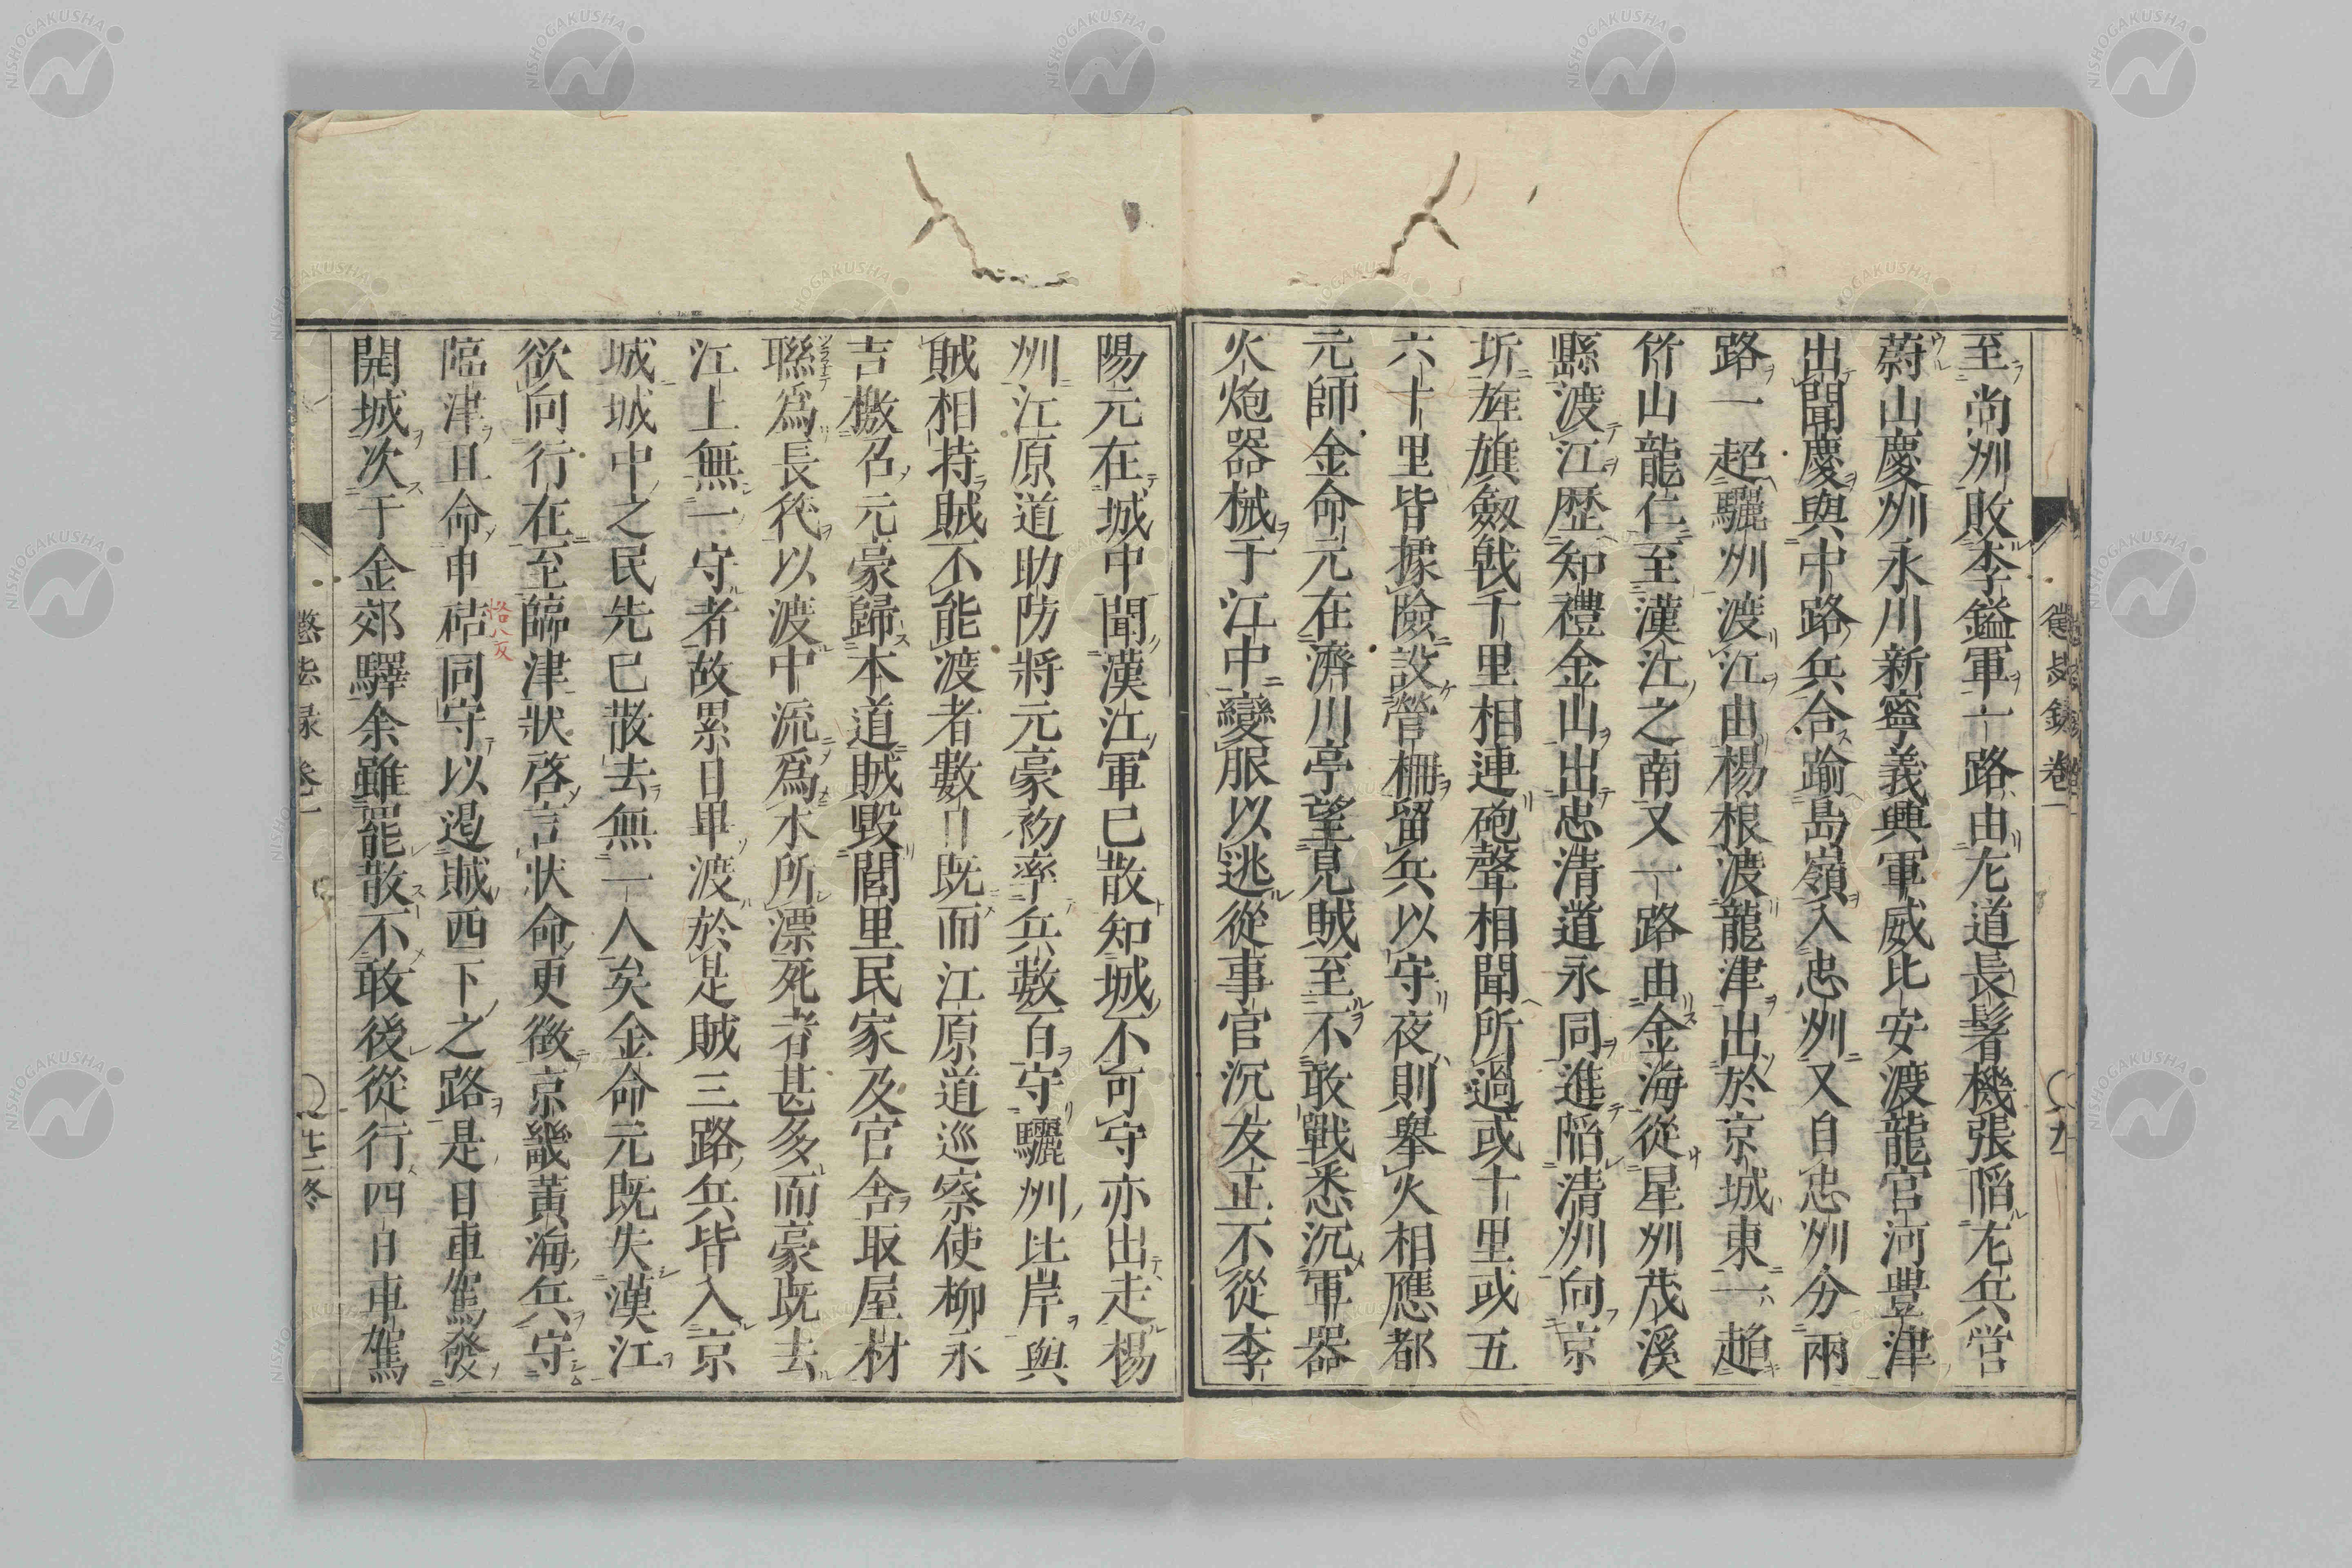 至尚州敗李鎰軍一路由左道長鬐機張陷左兵営
蔚山慶州永川新寧義興軍威比安渡龍宮河豊津
出聞慶與中路兵合踰鳥嶺入忠州又自忠州分兩
路一趨驪州渡江由楊根渡龍津出於京城東一趨
竹山龍仁至漢江之南又一路由金海從星州茂溪
縣渡江歴知禮金山出忠清道永同進陷清州向京
圻旌旗劔戟千里相連砲聲相聞所過或十里或五
六十里皆據險設營柵留兵以守夜則舉火相應都
元師金命元在濟川亭望見賊至不敢戰悉沉軍器
火炮器械于江中變服以逃從事官沉友正不從李
陽元在城中聞漢江軍已散知城不可守亦出走楊
州江原道助防將元豪初率兵數百守驪州比岸與
賊相持賊不能渡者數日既而江原道巡察使柳永
吉檄召元豪歸本道賊毀閭里民家及官舎取屋材
聮爲長筏以渡中流爲水所漂死者甚多而豪既去
江上無一守者故累日畢渡於是賊三路兵皆入京
城城中之民先已散去無一人矣金命元既失漢江
欲向行在至臨津狀啓言狀命更徴京畿黄海兵守
臨津且命申硈同守以遏賊西下之路是日車駕發
開城次于金郊驛余雖罷散不敢後從行四日車駕
懲毖録 巻一
懲毖録 巻一
NISHOGAKUSHA